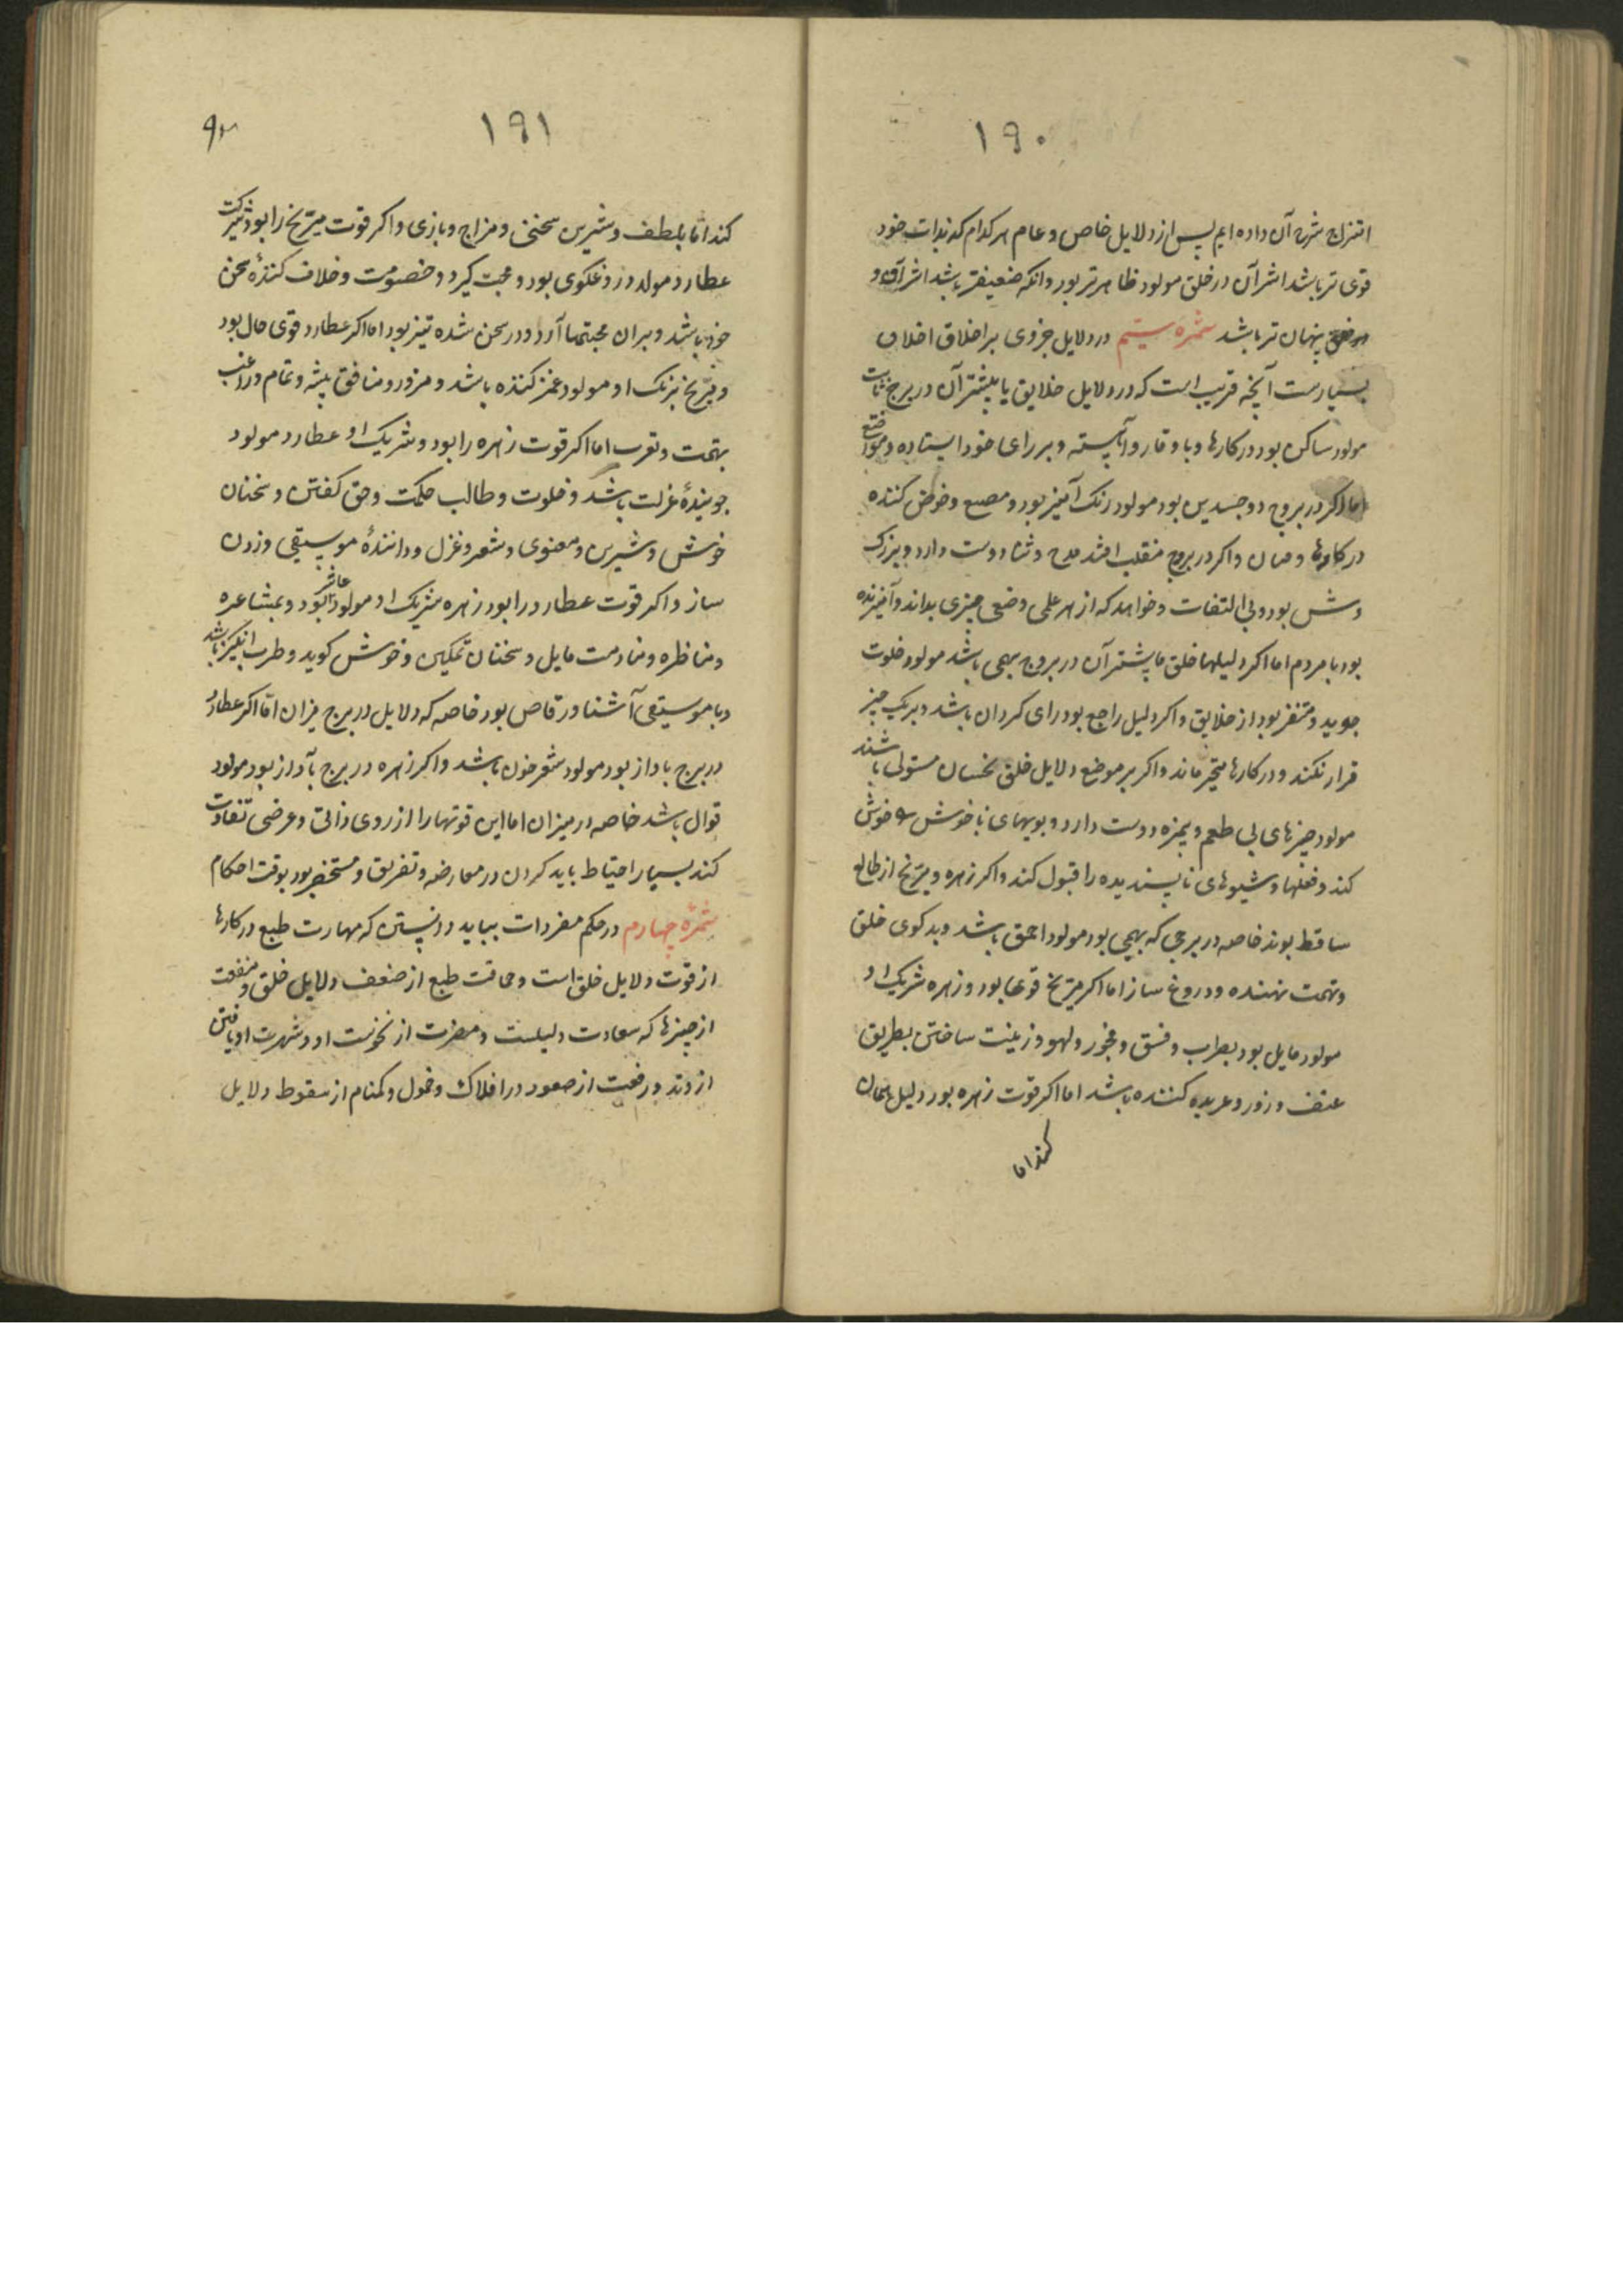 ۱۹۰
امتزاج شرح آن داده ایم پس از دلایل خاص و عام هر کدام که بذات خود
قوی تر باشد اثر آن در خلق مولود ظاهرتر بود و انکه ضعیفتر باشد اثر آن
پنهان تر باشد ثمره سیم در دلایل جزوی بر اخلاق اخلاق
بسیارست آنچه قریب است که در دلایل خلایق یا بیشتر آن در برج ثابت
مولود ساکن بود در کارها و با وقار و آهسته و بر رای خود ایستاده و متواضع
اما اکر در بروج دو جسدین بود مولود رنک آمیز بود و مصیع و خوض کننده
در کارها و اکر در بروج منقلب افتد مدح و ثنا دوست دارد و بزرک
منش بود و بی التفات و خواهد که از هر علمی و ضعی چیزی بداند و آمیزنده
بود با مردم اما اکر دلیلها خلق یا بیشتر آن در بروج بهیمی باشد مولود خلوت
جوید و متنفر بود از خلایق و اکر دلیل راجع بود رای کردان باشد و بر یک چیز
قرار نکند و در کارها متحیر ماند و اکر بر موضع دلایل خلق نحسان مستولی باشند
مولود چیزهای بی طعم و بیمزه دوست دارد و بویهای ناخوش خوش
کند و فعلها و شیوهای ناپسندیده را قبول کند و اکر زهره و مریخ از طالع
ساقط بوند خاصه در برجی که بهیمی بود مولود احمق باشد و بد کوی خلق
و تهمت نهنده و دروغ ساز اما اکر مریخ قوی بود و زهره شریک او
مولود مایل بود بطرب و فسق و فجور و لهو و زینت ساختن بطریق
عنف و زور و عربده کننده باشد اما اکر قوت زهره بود دلیل همان
کند اما
۱۹۱
کند اما بلطف و شیرین سخنی و مزاح و بازی و اکر قوت مریخ را بود و شرکت
عطارد مولود دروغکوی بود و حجت کیرد و خصومت و خلاف کننده سخن
خود باشد و بر ان حجتها آرد و در سخن شده تیز بود اما اکر عطارد قوی حال بود
و مریخ شریک او مولود غمز کننده باشد و مزور و منافق پیشه و تمام و راغب
بتهمت و تعرب اما اکر قوت زهره را بود و شریک او عطارد مولود
جوینده عزلت باشد و خلوت و طالب حکمت و حق کفتن و سخنان
خوش و شیرین و معنوی و شعر و غزل و داننده موسیقی و زدن
ساز و اکر قوت عطارد را بود زهره شریک او مولود شاعر بود و بمشاعره
و مناظره و منادمت مایل و سخنان نمکین و خوش کوید و طرب انکیز باشد
و با موسیقی آشنا و رقاص بود خاصه که دلایل در برج میزان اما اکر عطارد
در برج باواز بود مولود شعر خوان باشد و اکر زهره در برج بآواز بود مولود
قوال باشد خاصه در میزان اما این قوتها را از روی ذاتی و عرضی تفاوت
کند بسیار احتیاط باید کردن در معارضه و تفریق و مستحضر بود بوقت احکام
ثمرهٔ چهارم در حکم مفردات بباید دانستن که مهارت طبع در کارها
از قوت دلایل خلق است و حماقت طبع از ضعف دلایل خلق و منفعت
از چیزها که سعادت دلیلست و مضرت از نحوست او و شهرت او یافتن
از وتد و رفعت از صعود در افلاک و خمول و کمنام از سقوط دلایل